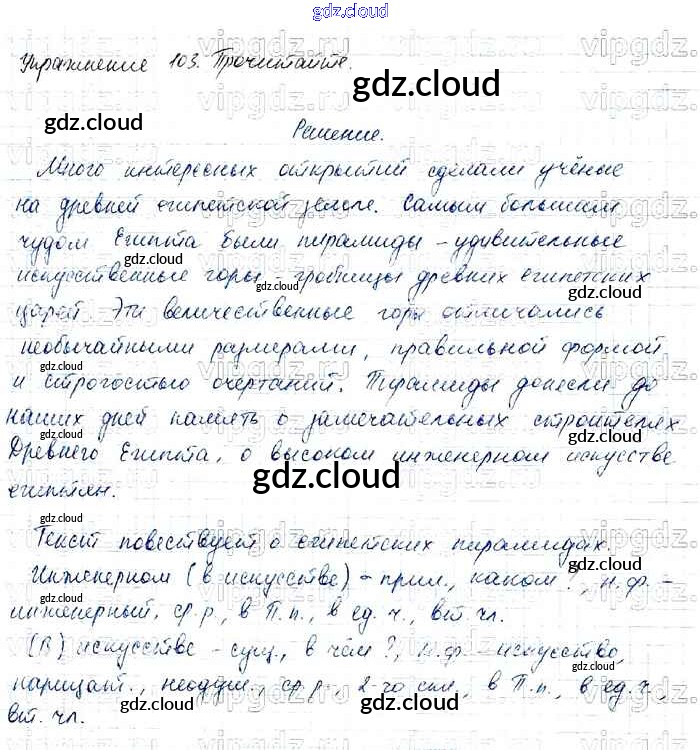 gdz.cloud
Упражнение 103. Прочитайте.
gdz.cloud
gdz.cloud
Решение.
Много интересных открытий сделали учёные
на древней египетской земле. Самым большим
чудом Египта были пирамиды – удивительные
искусственные горы – гробницы древних египетских
царей. Эти величественные горы отличались
необычайными размерами, правильной формой
и строгостью очертаний. Пирамиды донесли до
наших дней память о замечательных строителях
Древнего Египта, о высоком инженерном искусстве
египтян.
gdz.cloud
Текст повествует о египетских пирамидах.
Инженерном (в искусстве) – прил., каком?, н.ф. –
инженерный, ср.р., в П.п., в ед.ч., вт. чл.
(В) искусстве – сущ., в чём?, н.ф. – искусство,
нарицат., неодуш., ср.р., 2-го скл., в П.п., в ед.ч.,
вт. чл.
gdz.cloud